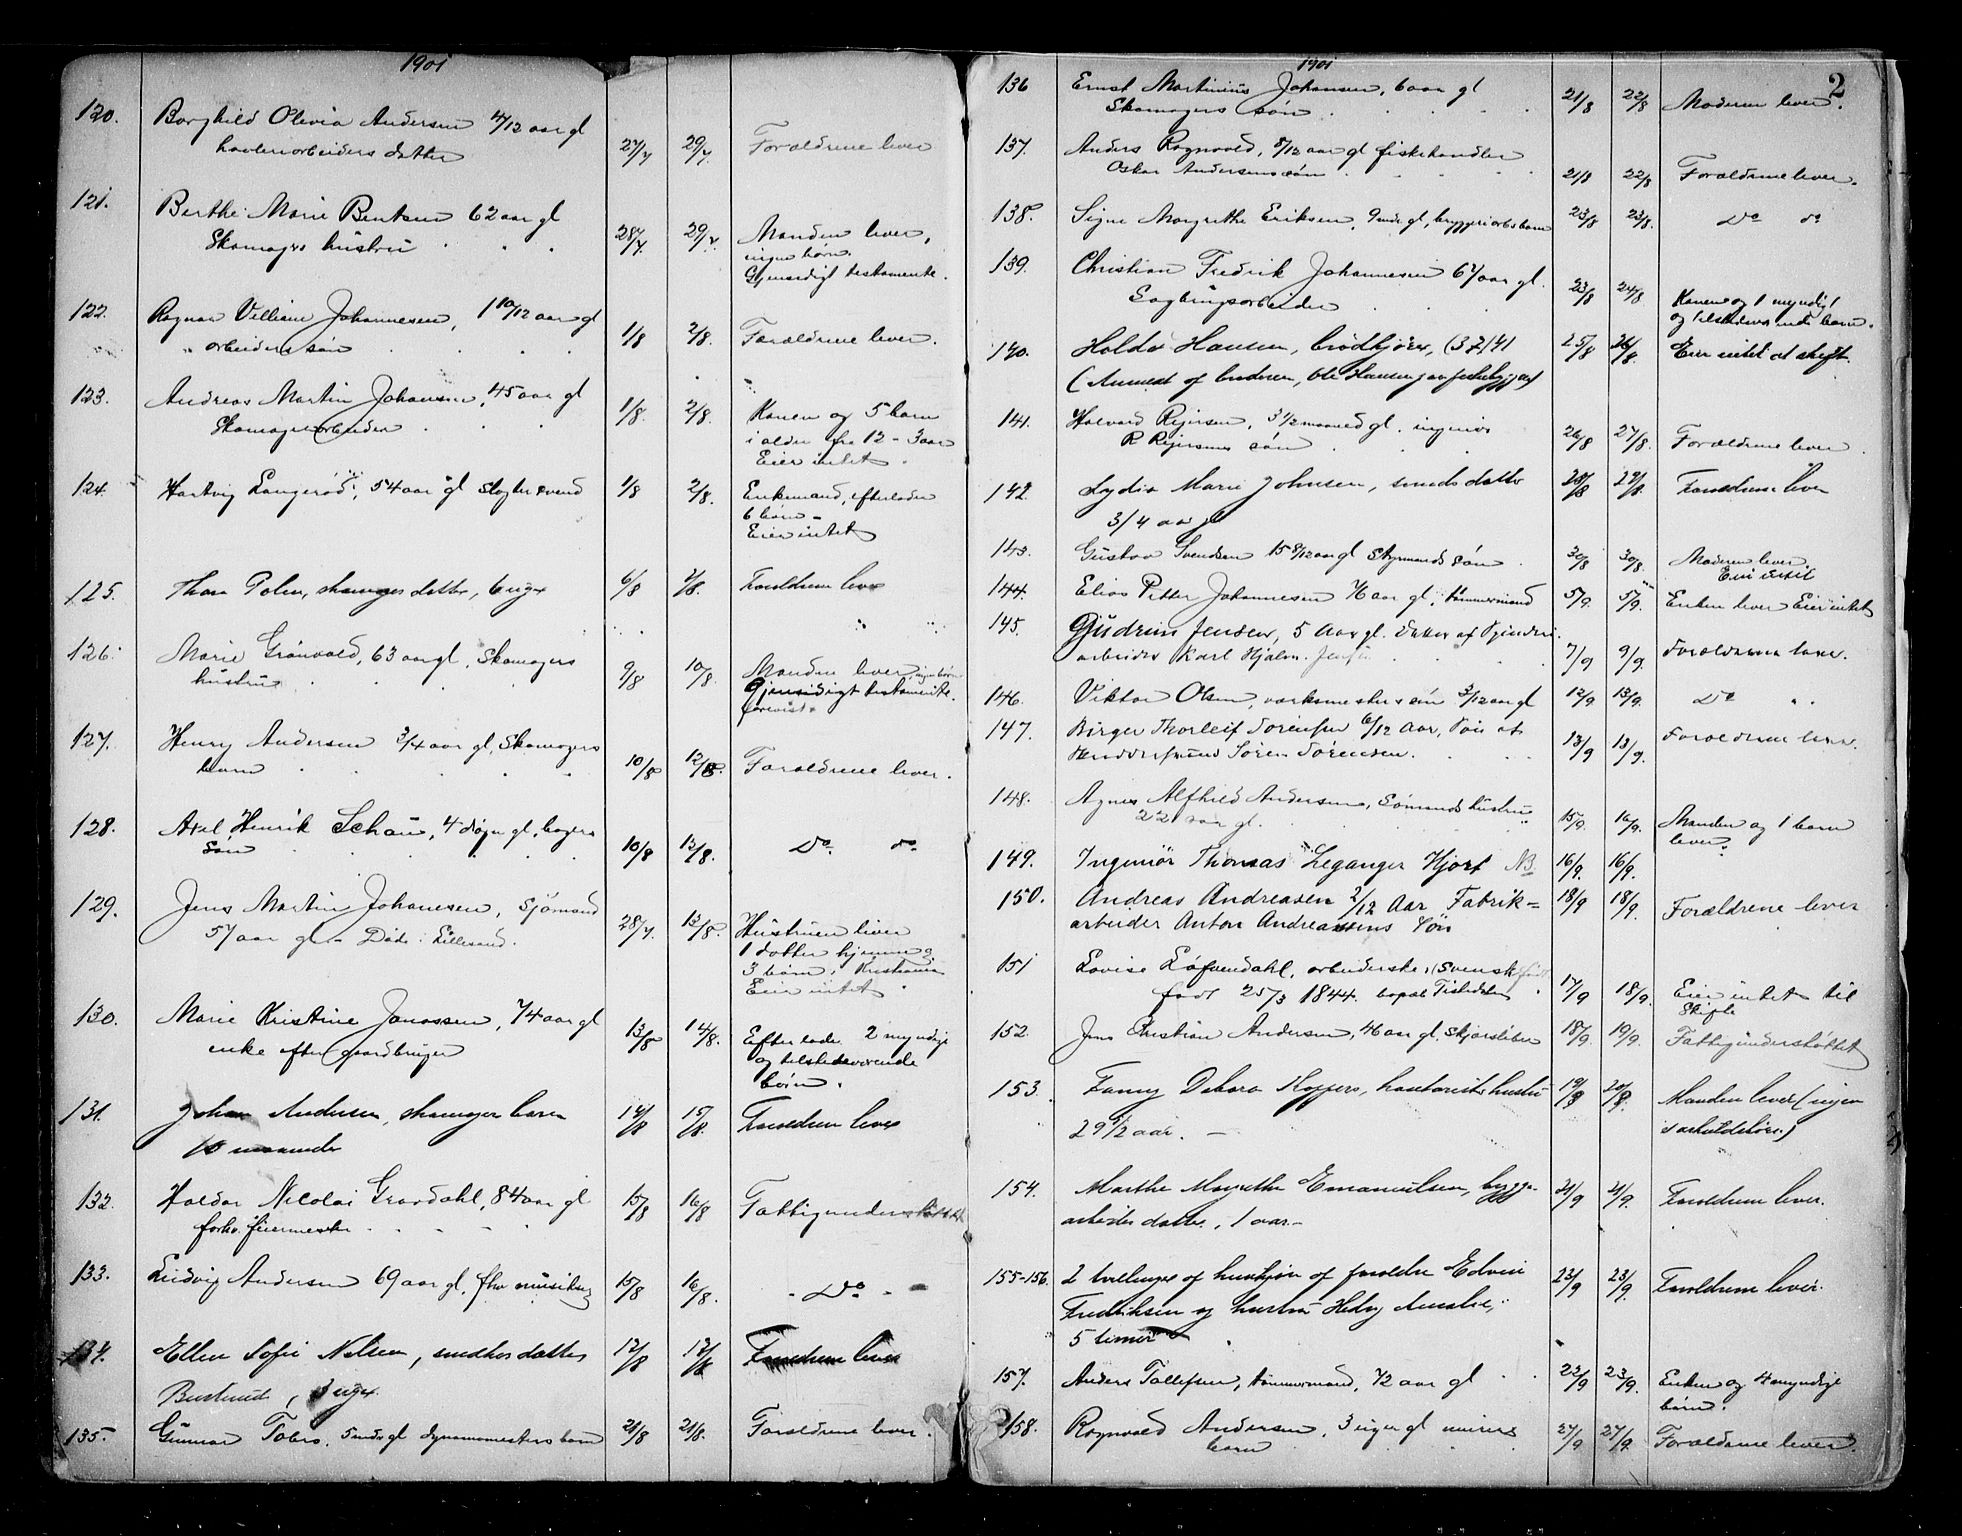 1901
120. Borghild Olivia Andersen 4/12 aar gl
havnearbeiders datter 27/7 29/7. Forældrene lever
121. Berthe Marie Bentsen 62 aar gl
Skomagers hustru 28/7 29/7. Manden lever,
ingen børn.
Gjensidigt testamente.
122. Ragnar Villiam Johannesen, 1 10/12 aar gl
arbeiders søn 1/8 2/8. Forældrene lever.
123. Andreas Martin Johansen, 45 aar gl
Skomagerarbeider 1/8. 2/8. Konen og 5 barn
i alder fra 12 - 3 aar
Eier intet.
124. Hartvig Langerød, 54 aar gl Slagtersvend 1/8 2/8. Enkemand, efterlader
6 børn -
Eier intet
125. Thora Polen, skomagers datter, 6 uger 6/8 7/8. Forældrene lever
126. Marie Grønvold, 63 aar gl, Skomagers
hustru 9/8 10/8. Manden lever ingen børn
Gjensidigt testamente.
forevist.
127. Henry Andersen 3/4 aar gl, Skomagers
barn 10/8 12/8. Forældrene lever.
128. Axel Henrik Schau, 4 døgn gl, bagers
søn 10/8 12/8. Do do
129. Jens Martin Johanesen, Sjømand
57 aar gl - Død i Lillesand. 28/7. 13/8. Hustruen lever
1 datter hjemme og
3 børn i Kristiania
Eier intet.
130. Marie Kristine Janassen, 74 aar gl
enke efter gaardbruger 13/8 14/8. Efterlader 2 myndige
og tilstedeværende
børn.
131. Johan Andersen, skomager barn
10 maaneder 14/8 15/8. Forældrene lever
132. Haldor Nicolai Gravdahl, 84 aar gl
forhv. feiermester 15/8 16/8 Fattigunderstøttet
133. Ludvig Andersen 69 aar gl, fhv musiker 15/8 16/8. - Do -
134. Ellen Sofie Nilsen, datter
3 uger. 12/8 12/8 Forældrene lever
135. Gunnar Tobro, 5 mdr gl dynamomesters barn 21/8 21/8. Forældrene lever.
1901
2
136 Ernst Martinius Johansen, 6 aar gl
Skomagers søn 21/8 22/8 Moderen lever.
137. Anders Ragnvald, 8/12 aar gl fiskehandler
Oskar Andersens søn 21/8 22/8 Forældrene lever.
138. Signe Margrethe Eriksen, 9 mdr gl, bryggeriarbs barn 23/8 23/8. Do do
139. Christian Fredrik Johannesen 67 aar gl.
Sagbrugsarbeider 23/8 24/8 Konen og 1 myndigt
og tilstedeværende barn.
140. Haldor Hansen, brødkjører, (37) 41 25/8 26/8. Eier intet at skifte.
(Anmeldt af broderen, Ole Hansen
141. Halvard Reiersen, 3 1/2 maaned gl. ingeniør
R Reiersens søn 26/8 27/8. Forældrene lever.
142. Lydia Marie Johnsen, smeds datter
3/4 aar gl 28/8 29/8. Forældrene lever
143. Gustav Svendsen 15 8/12 aar gl Styrmands søn 30/8 30/8. Moderen lever
Eier intet
144. Elias Petter Johannesen 76 aar gl, tømmermand 5/9. 5/9. Enken lever Eier intet
145. Gudrun Jensen, 5 Aar gl. Datter af Spinderi
arbeider Karl Hjalm. Jensen 7/9 9/9. Forældrene lever.
146. Viktor Olsen, værksmesters søn 3/12 aar gl 12/9 13/9. Do "
147. Birger Thorleif Sørensen 6/12 Aar, Søn af
Søren Sørensen. 13/9 13/9. Forældrene lever.
148. Agnes Alfhild Andersen, Sømands hustru
22 aar gl. 15/9. 16/9. Manden og 1 barn
lever.
149. Ingeniør Thomas Leganger Hjort NB 16/9. 16/9.
150. Andreas Andreasen 2/12 Aar Fabrik=
arbeider Anton Andreasens Søn 18/9 18/9. Forældrene lever
151 Lovise Löfvendahl, arbeiderske, (Svensk født
født 25/3 1844. bopæl Tistedalen 17/9 18/9. Eier intet til
Skifte
152. Jens Christian Andersen, 46 aar gl. Skjærsliber 18/9. 19/9. Fattigunderstøttet
153. Fanny Debora Hoppers, kontorists hustru
29 1/2 aar. - 19/9 20/9. Manden lever (ingen
154. Marthe Margrethe Emanuelsen, brygge-
arbeiders datter, 1 aar - 21/9 21/9. Forældrene lever.
155-156. 2 tvillinger af hunkjøn af forældre Edvin
Fredriksen og hustru Hedvig Amalie,
5 timer 23/9 23/9. Forældrene lever.
157. Anders Tollefsen, tømmermand, 72 aar gl 22/9 23/9. Enken og 4 myndige
børn.
158. Ragnvald Andersen, 3 uger gl murers
barn 27/9 27/9. Forældrene lever.